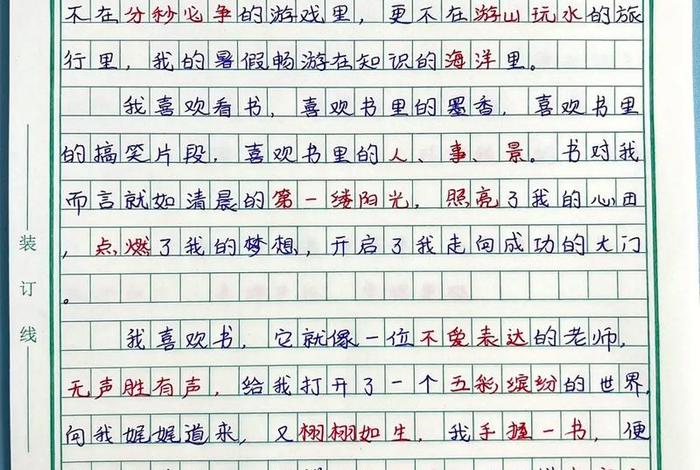 不在分秒必争的游戏里，更不在游山玩水的旅
行里，我的暑假畅游在知识的海洋里。
我喜欢看书，喜欢书里的墨香，喜欢书里
的搞笑片段，喜欢书里的人、事、景。书对我
而言就如清晨的第一缕阳光，照亮了我的心田
，点燃了我的梦想，开启了我走向成功的大门
。
我喜欢书，它就像一位不爱表达的老师，
无声胜有声，给我打开了一个五彩缤纷的世界，
向我娓娓道来，又栩栩如生，我手握一书，便
装订线